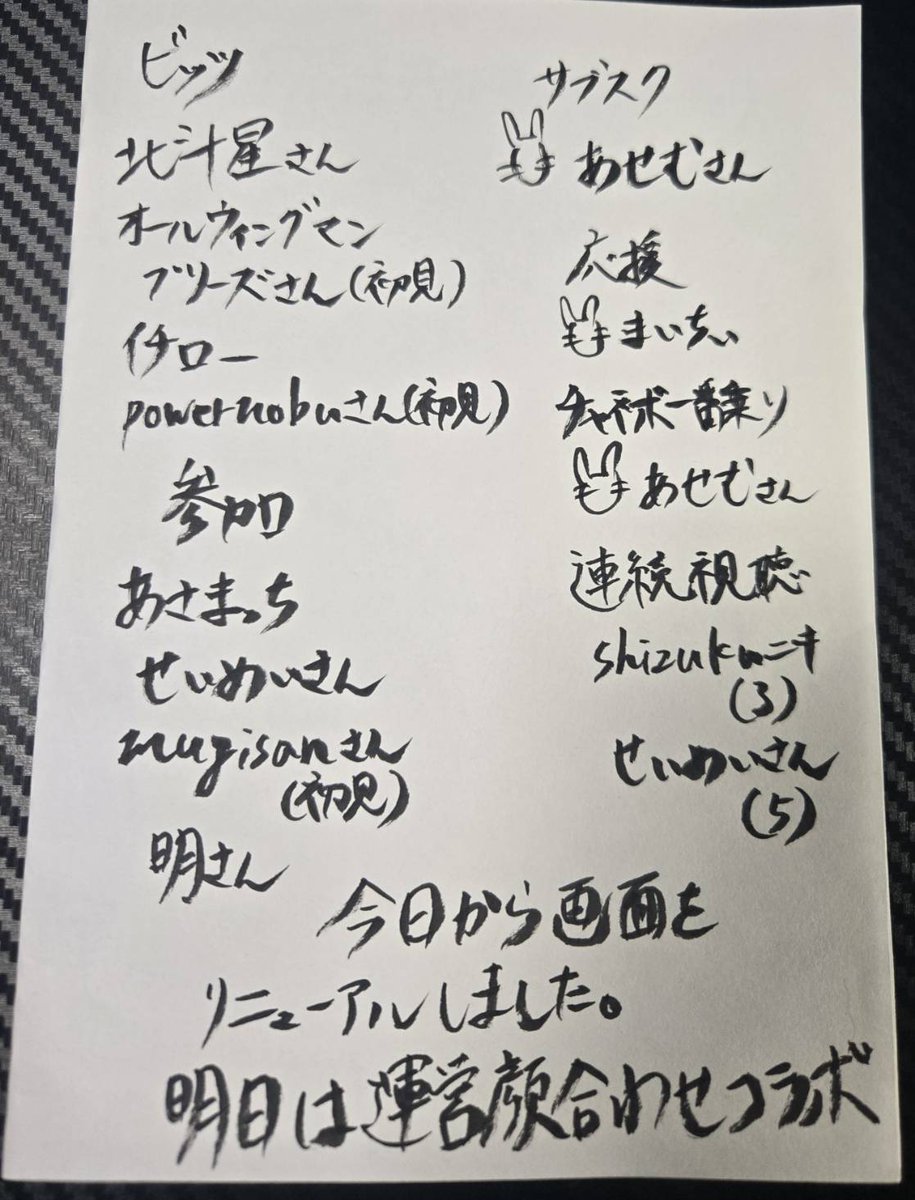 ビッツ
北斗星さん
オールウィングマン
ブリーズさん(初見)
イチロー
powernobuさん(初見)
参加
あさまっち
せいめいさん
mugisanさん
(初見)
明さん
サブスク
あせむさん
応援
まいちぃ
チャネボ一番乗り
あせむさん
連続視聴
shizukuニキ
(3)
せいめいさん
(5)
今日から画面を
リニューアルしました。
明日は運営顔合わせコラボ